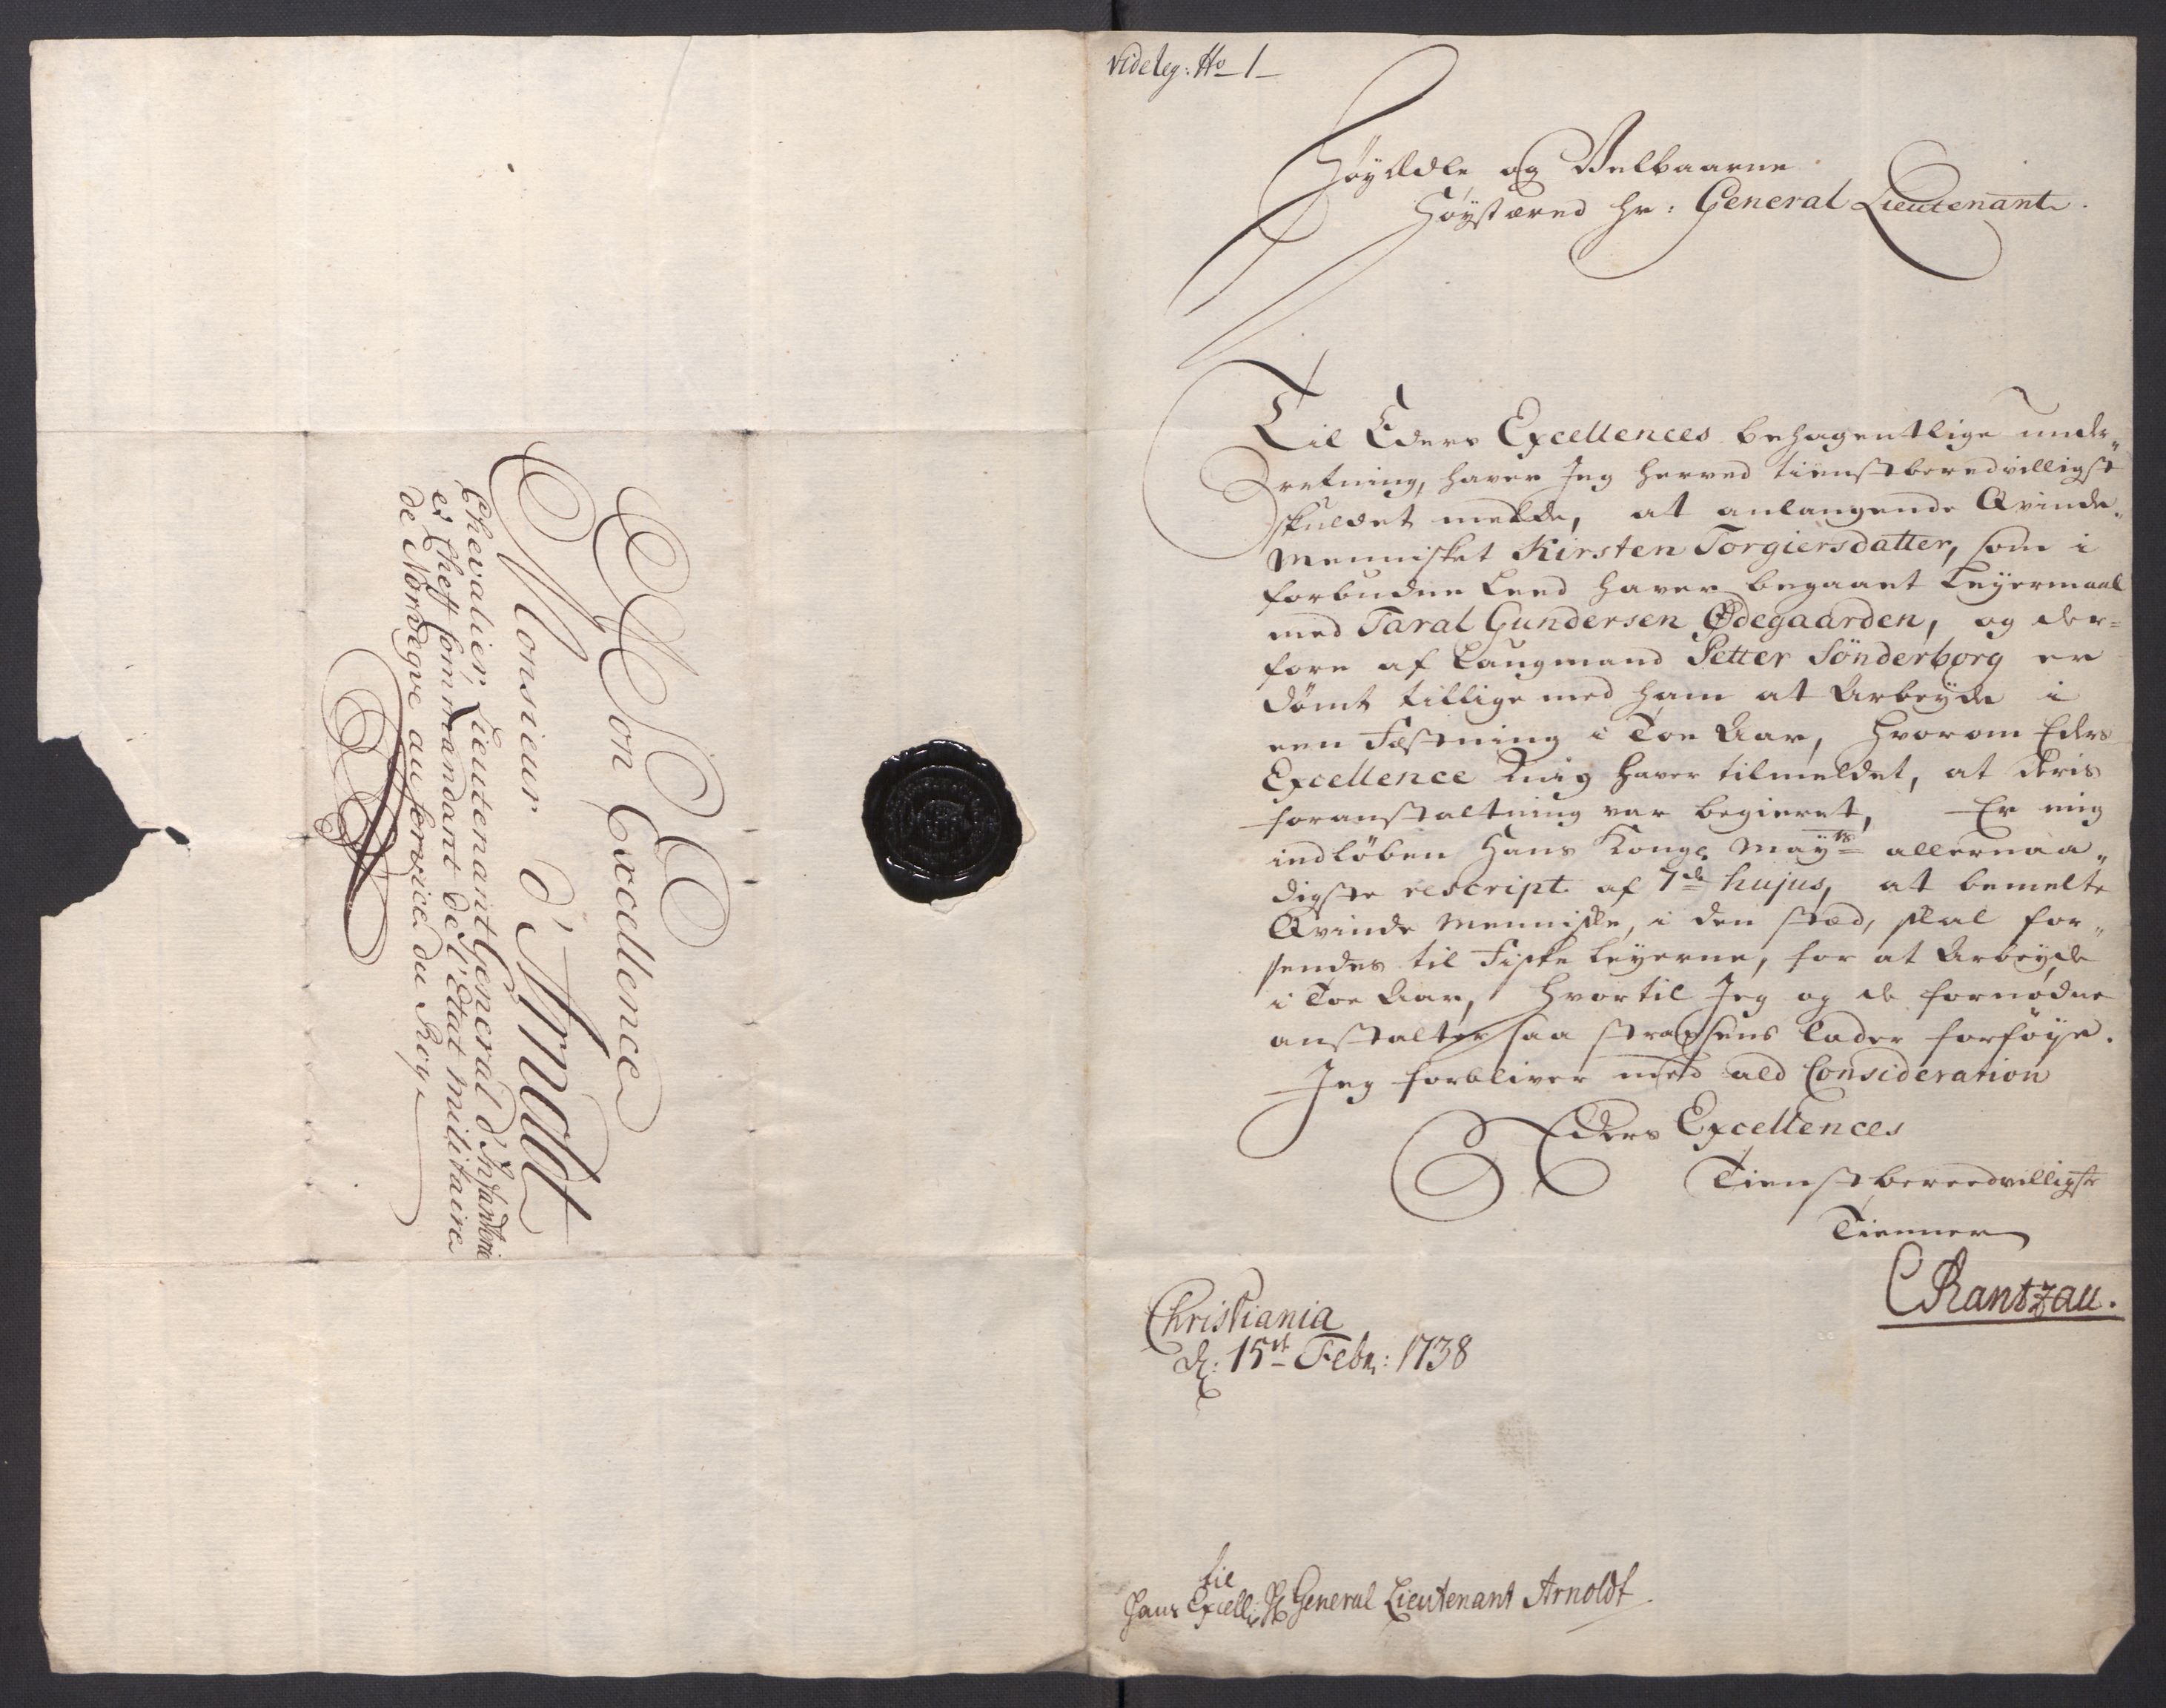 A Son Excellence
Monsieur d'Arnoldt
Chevalier, Lieutenant General d'Infanterie
et Cheff Commandant de l'Etat militaire
de Nordegve au service du Roy
Vide leg: No 1
HøyÆdle og Velbaarne
Høystærede Hr: General Lieutenant.
Til Eders Excellences behagentlige under„
retning, haver Jeg herved tienstberedvilligst
skuldet melde, at anlangende Qvinde„
Mennisket Kirsten Torgiersdatter, som i
forbudne Leed haver begaaet Leyermaal
med Taral Gundersen Ødegaarden, og der=
fore af Laugmand Petter Sönderborg er
dömt tillige med ham at Arbeyde i
een Fæstning i Toe Aar, hvorom Eders
Excellence mig haver tilmeldet, at deris
foranstaltning var begieret, Er mig
indløben Hans Kongl. Mayts allernaa„
digste rescript af 7de hujus, at bemelte
Qvinde Menniske, i den stæd, skal for„
sendes til Fiskeleyerne, for at Arbeyde
i Toe Aar, hvortil Jeg og de fornødne
anstalter saa strax sens lader forføye.
Jeg forbliver med ald Consideration
Eders Excellences
Tienstbereedvilligste
Tienner
C Rantzau.
Christiania
d: 15de Febr: 1738
til
Hans Excell: Hr General Lieutenant Arnoldt